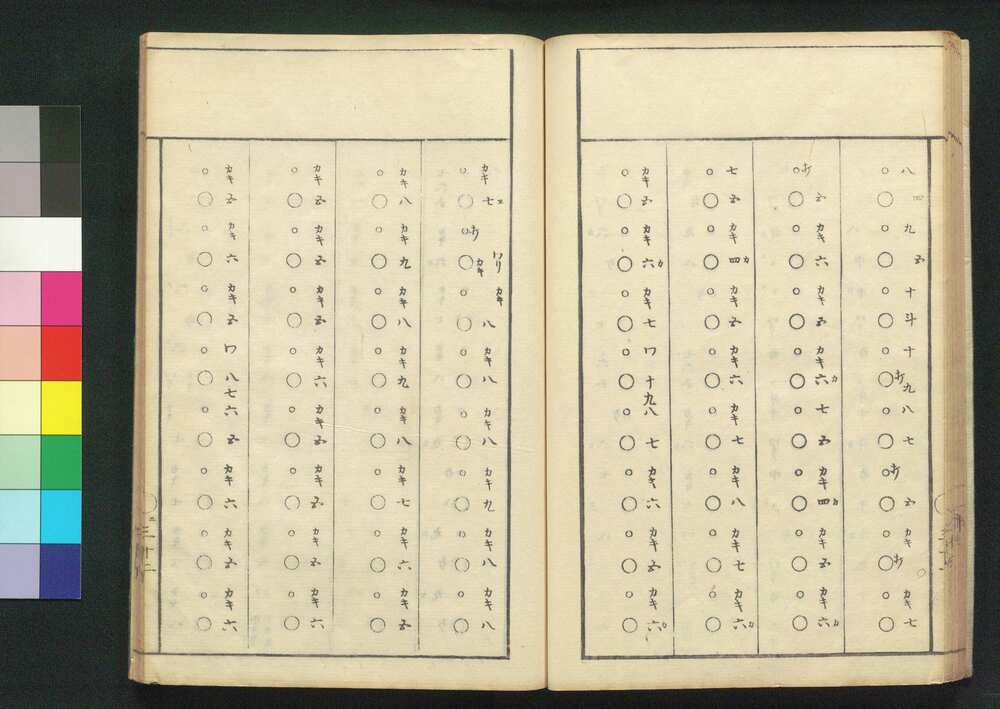 八 四 九 五 十 斗 十 オ 九 八 七 オ 五 カキ オ カキ 七
オ 五 カキ 六 カキ 五 カキ 六カ 七 五 カキ 四カ カキ 五 カキ 六カ
七 五 カキ 四カ カキ 五 カキ 六 カキ 七 カキ 八 カキ 七 カキ 六カ
カキ 五 カキ 六カ カキ 七 ワ 十 九 八 七 カキ 六 カキ 五 カキ 六カ
カキ 七 オ ワリ カキ カキ 八 カキ 八 カキ 八 カキ 九 カキ 八 カキ 八
カキ 八 カキ 九 カキ 八 カキ 九 カキ 八 カキ 七 カキ 六 カキ 五
カキ 五 カキ 五 カキ 五 カキ 六 カキ 五 カキ 五 カキ 五 カキ 六
カキ 五 カキ 六 カキ 五 ワ 八 七 六 五 カキ 六 カキ 五 カキ 六
三十二